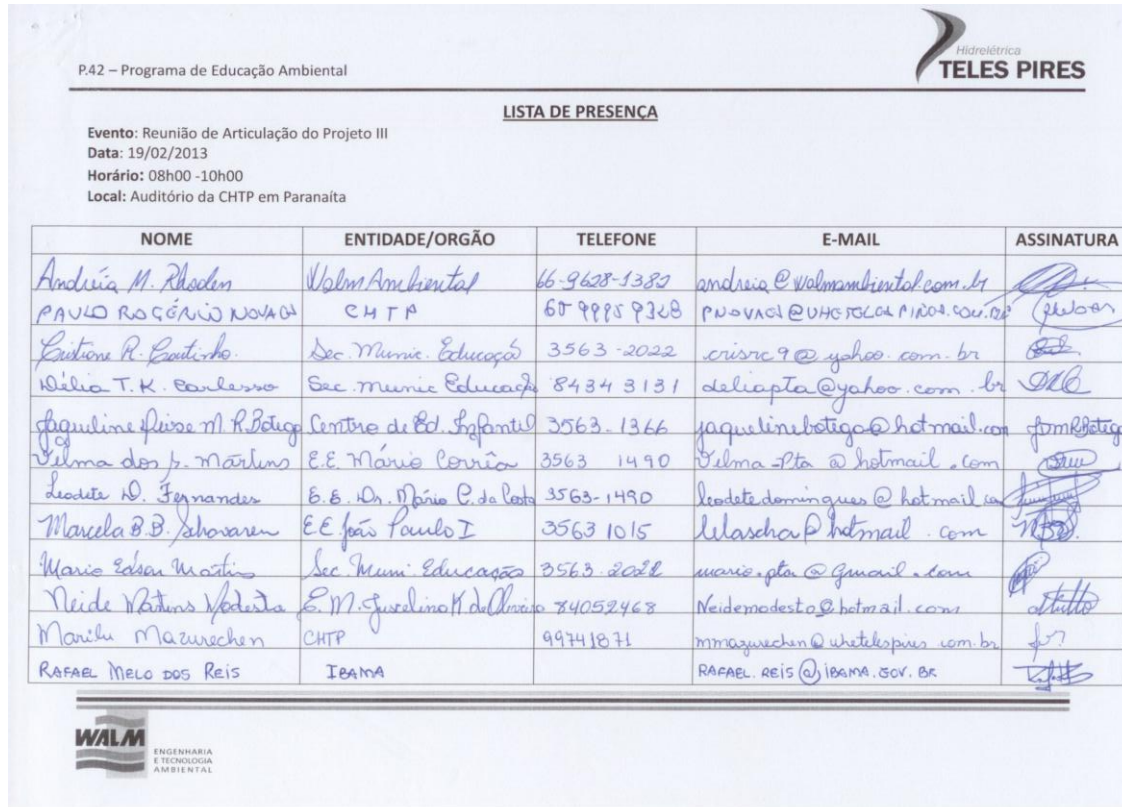 Hidrelétrica
TELES PIRES
P.42 – Programa de Educação Ambiental
LISTA DE PRESENÇA
Evento: Reunião de Articulação do Projeto III
Data: 19/02/2013
Horário: 08h00 -10h00
Local: Auditório da CHTP em Paranaíta
NOME ENTIDADE/ORGÃO TELEFONE E-MAIL ASSINATURA
Andréia M. Rhoden Walm Ambiental 66-9628-1382 andreia@walmambiental.com.br
PAULO ROGÉRIO NOVAES CHTP
Cristiane R. Coutinho. Sec. Munic. Educaçã 3563-2022 crisrc9@yahoo.com.br
Délia T. K. Carlesso Sec. Munic Educação 8434 3131 deliapta@yahoo.com.br
Jaqueline M. R. Botega Centro de Ed. Infantil 3563-1366 jaquelinebotega@hotmail.com
Vilma dos S. Martins E.E. Mário Corrêa 3563 1490 Vilma-Pta@hotmail.com
Leodete D. Fernandes E.E. Dr. Mário C. da Costa 3563-1490 leodetedomingues@hotmail.com
Marcela B.B. EE João Paulo I 3563 1015 lelascha@hotmail.com
Mario Edson Martins Sec. Muni. Educação 3563-2022 mario.pta@gmail.com
Neide Martins Modesto E. M. Juscelino K. de Oliveira 84052468 Neidemodesto@hotmail.com
Marilu Mazurechen CHTP 99741871 mmazurechen@uhetelespires.com.br
RAFAEL MELO DOS REIS IBAMA RAFAEL.REIS@IBAMA.GOV.BR
WALM
ENGENHARIA
E TECNOLOGIA
AMBIENTAL